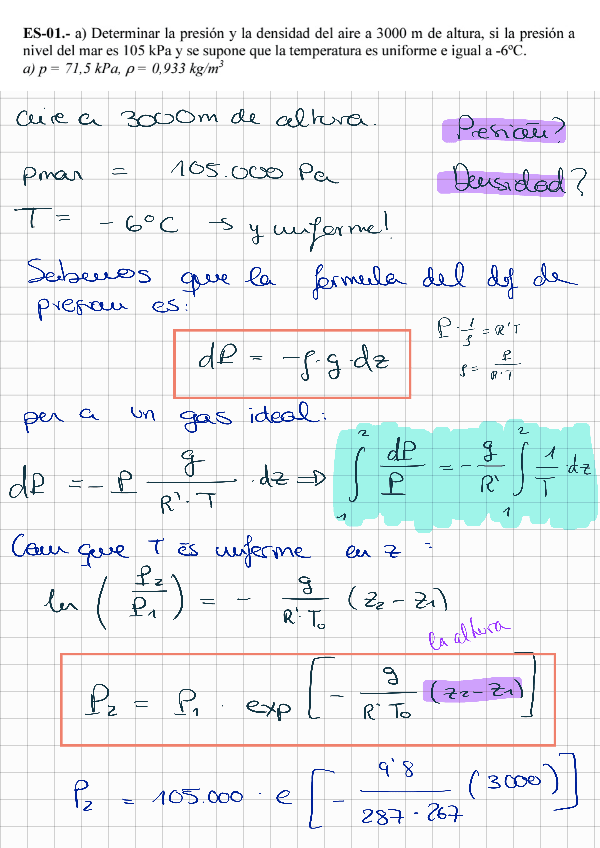 ES-01.- a) Determinar la presión y la densidad del aire a 3000 m de altura, si la presión a
nivel del mar es 105 kPa y se supone que la temperatura es uniforme e igual a -6ºC.
a) p = 71,5 kPa, ρ = 0,933 kg/m³
aire a 3000m de altura.
Presión?
pmar = 105.000 Pa
Densidad?
T = - 6ºC → y uniforme!
Sabemos que la formula del dif de
presión es:
dP = -ρ·g·dz
P · 1/ρ = R'T
ρ = P/(R'·T)
per a un gas ideal:
dP = - P g/(R'·T) · dz ⇒ ∫₁² dP/P = - g/R' ∫₁² 1/T dz
Com que T és uniforme en z =
ln (P₂/P₁) = - g/(R'·T₀) (z₂ - z₁)
la altura
P₂ = P₁ · exp [ - g/(R' T₀) (z₂ - z₁) ]
P₂ = 105.000 · e [ - 9'8/(287 · 267) (3000) ]